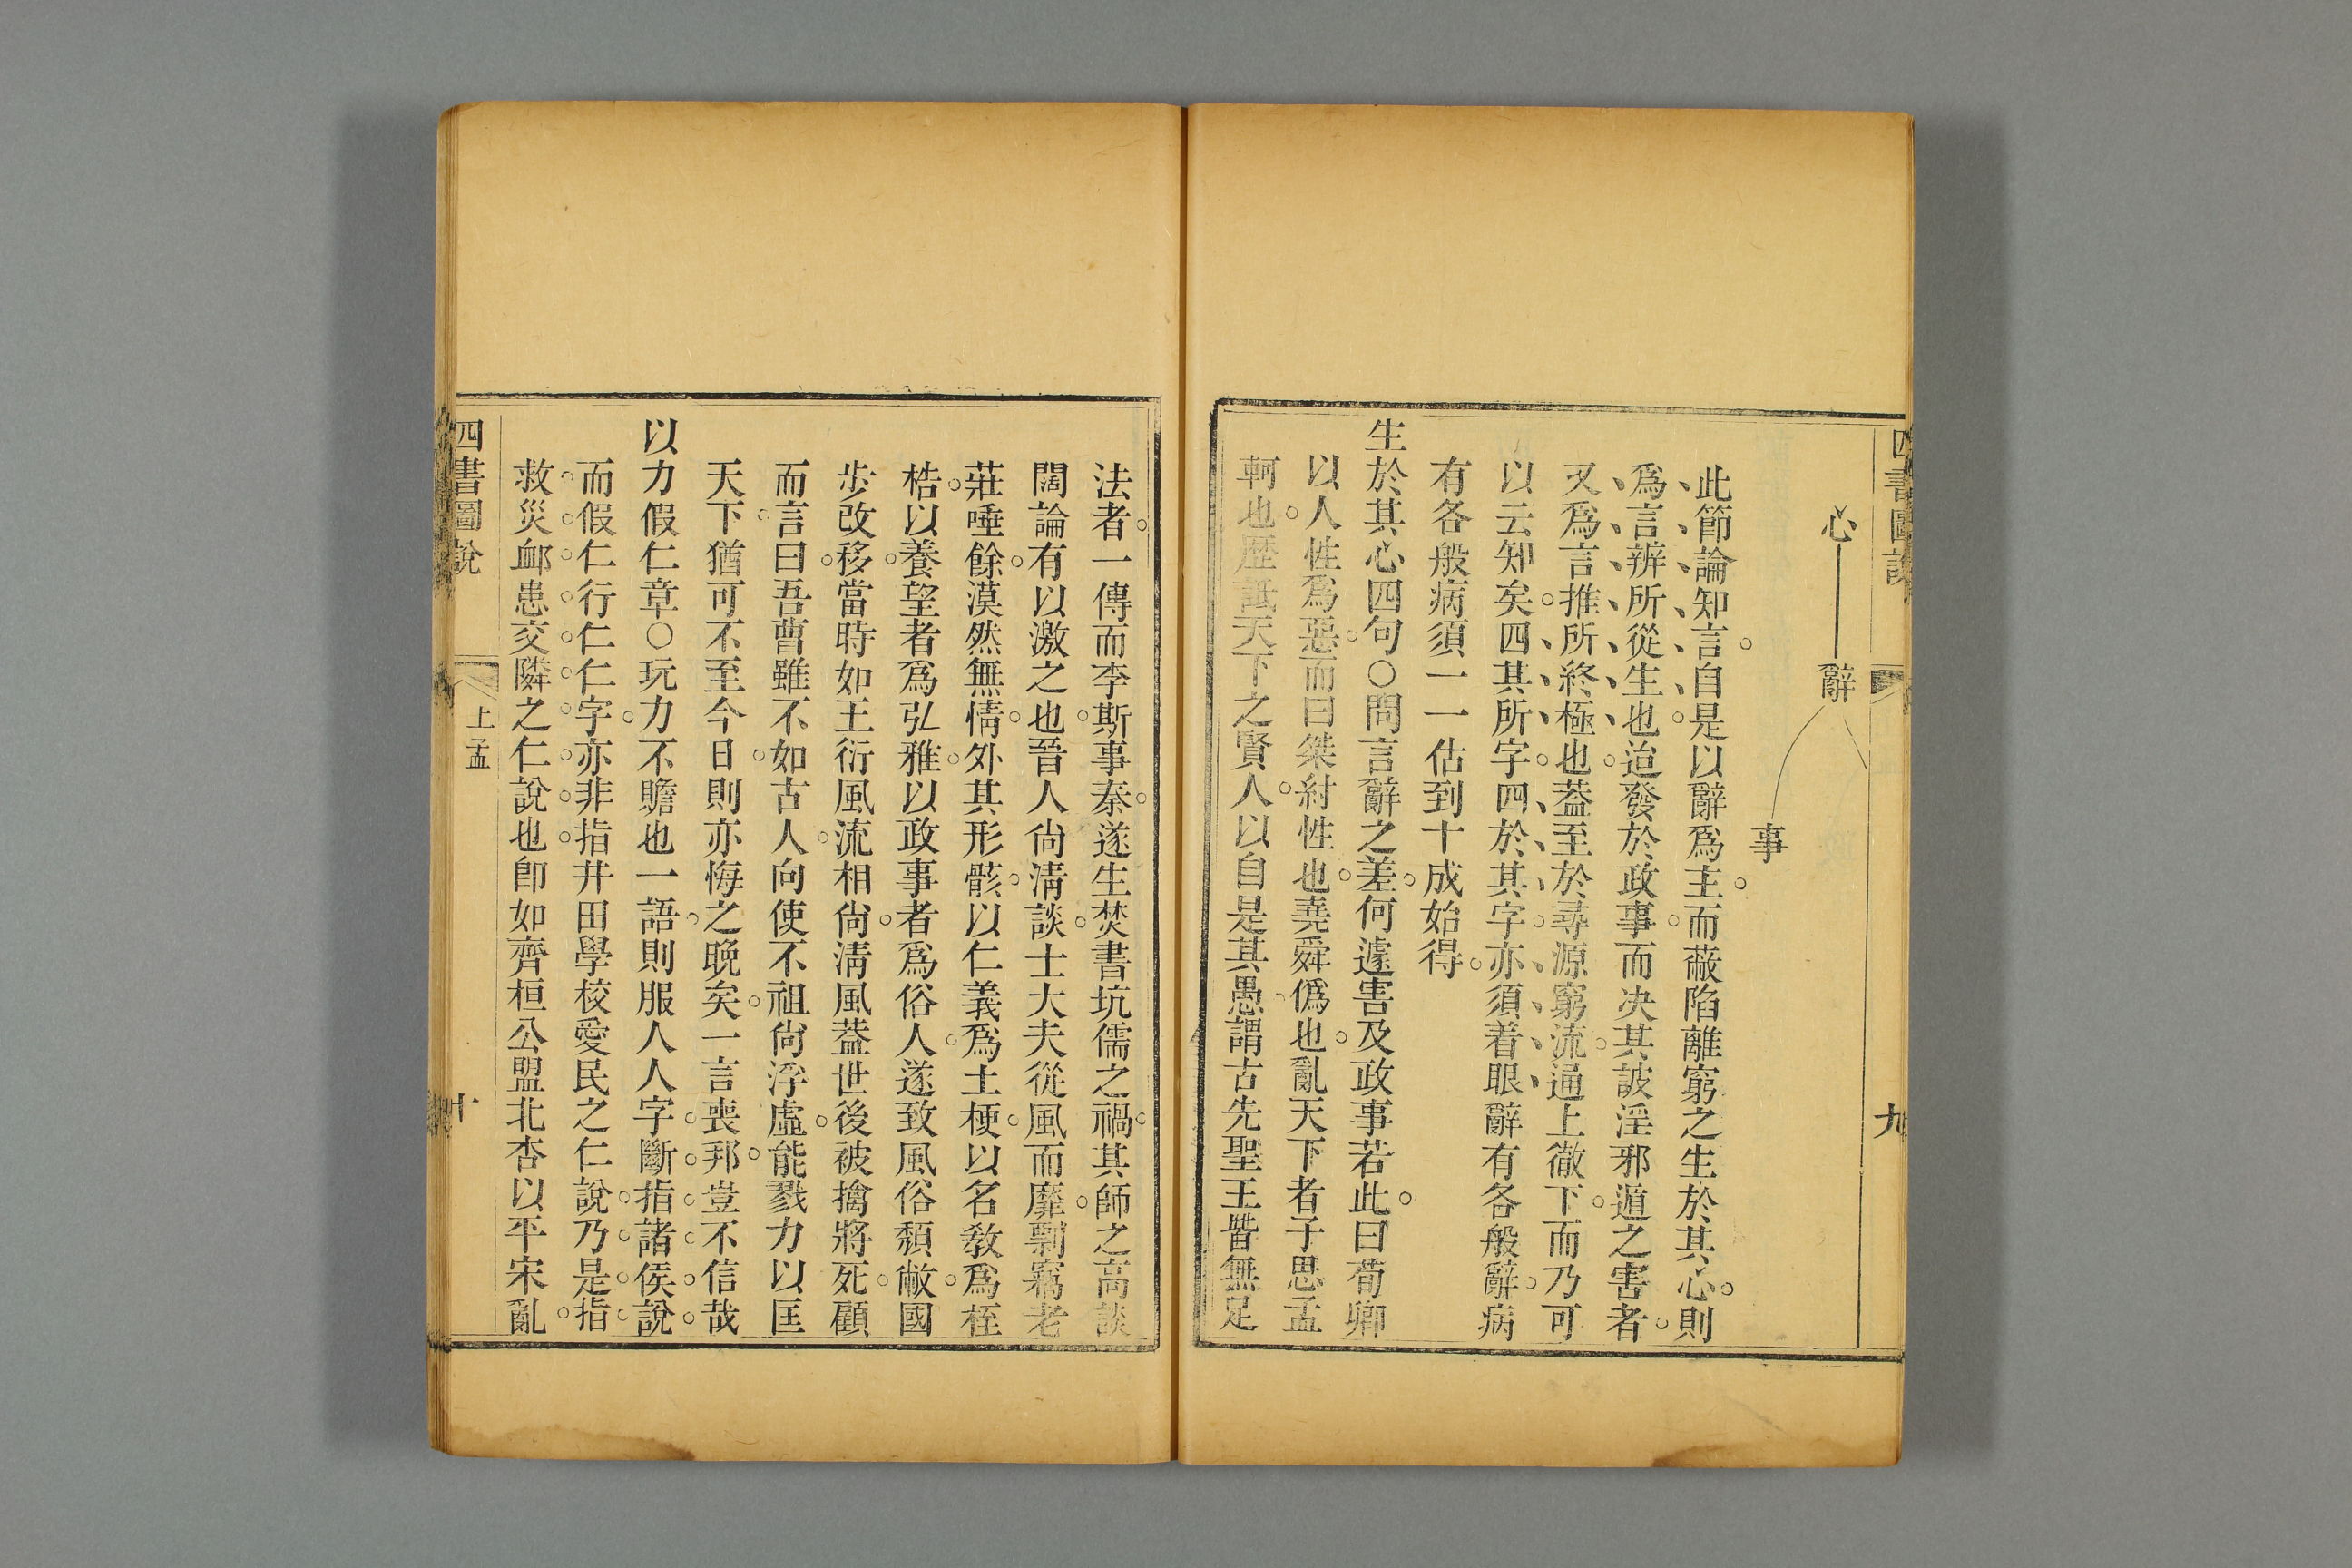 四書圖說
九
心
辭
事
此節論知言自是以辭爲主而蔽陷離窮之生於其心則
爲言辨所從生也迨發於政事而决其詖淫邪遁之害者
又爲言推所終極也葢至於尋源窮流通上徹下而乃可
以云知矣四其所字四於其字亦須着眼辭有各般辭病
有各般病須一一估到十成始得
生於其心四句○問言辭之差何遽害及政事若此曰荀卿
以人性爲惡而曰桀紂性也堯舜僞也亂天下者子思孟
軻也歷詆天下之賢人以自是其愚謂古先聖王皆無足
法者一傳而李斯事秦遂生焚書坑儒之禍其師之高談
闊論有以激之也晉人尙淸談士大夫從風而靡剽竊老
莊唾餘漠然無情外其形骸以仁義爲土梗以名敎爲桎
梏以養望者爲弘雅以政事者爲俗人遂致風俗頹敝國
步改移當時如王衍風流相尙淸風葢世後被擒將死顧
而言曰吾曹雖不如古人向使不祖尙浮虛能戮力以匡
天下猶可不至今日則亦悔之晚矣一言喪邦豈不信哉
以力假仁章○玩力不贍也一語則服人人字斷指諸侯說
而假仁行仁仁字亦非指井田學校愛民之仁說乃是指
救災䘏患交隣之仁說也卽如齊桓公盟北杏以平宋亂
四書圖說
上孟
十